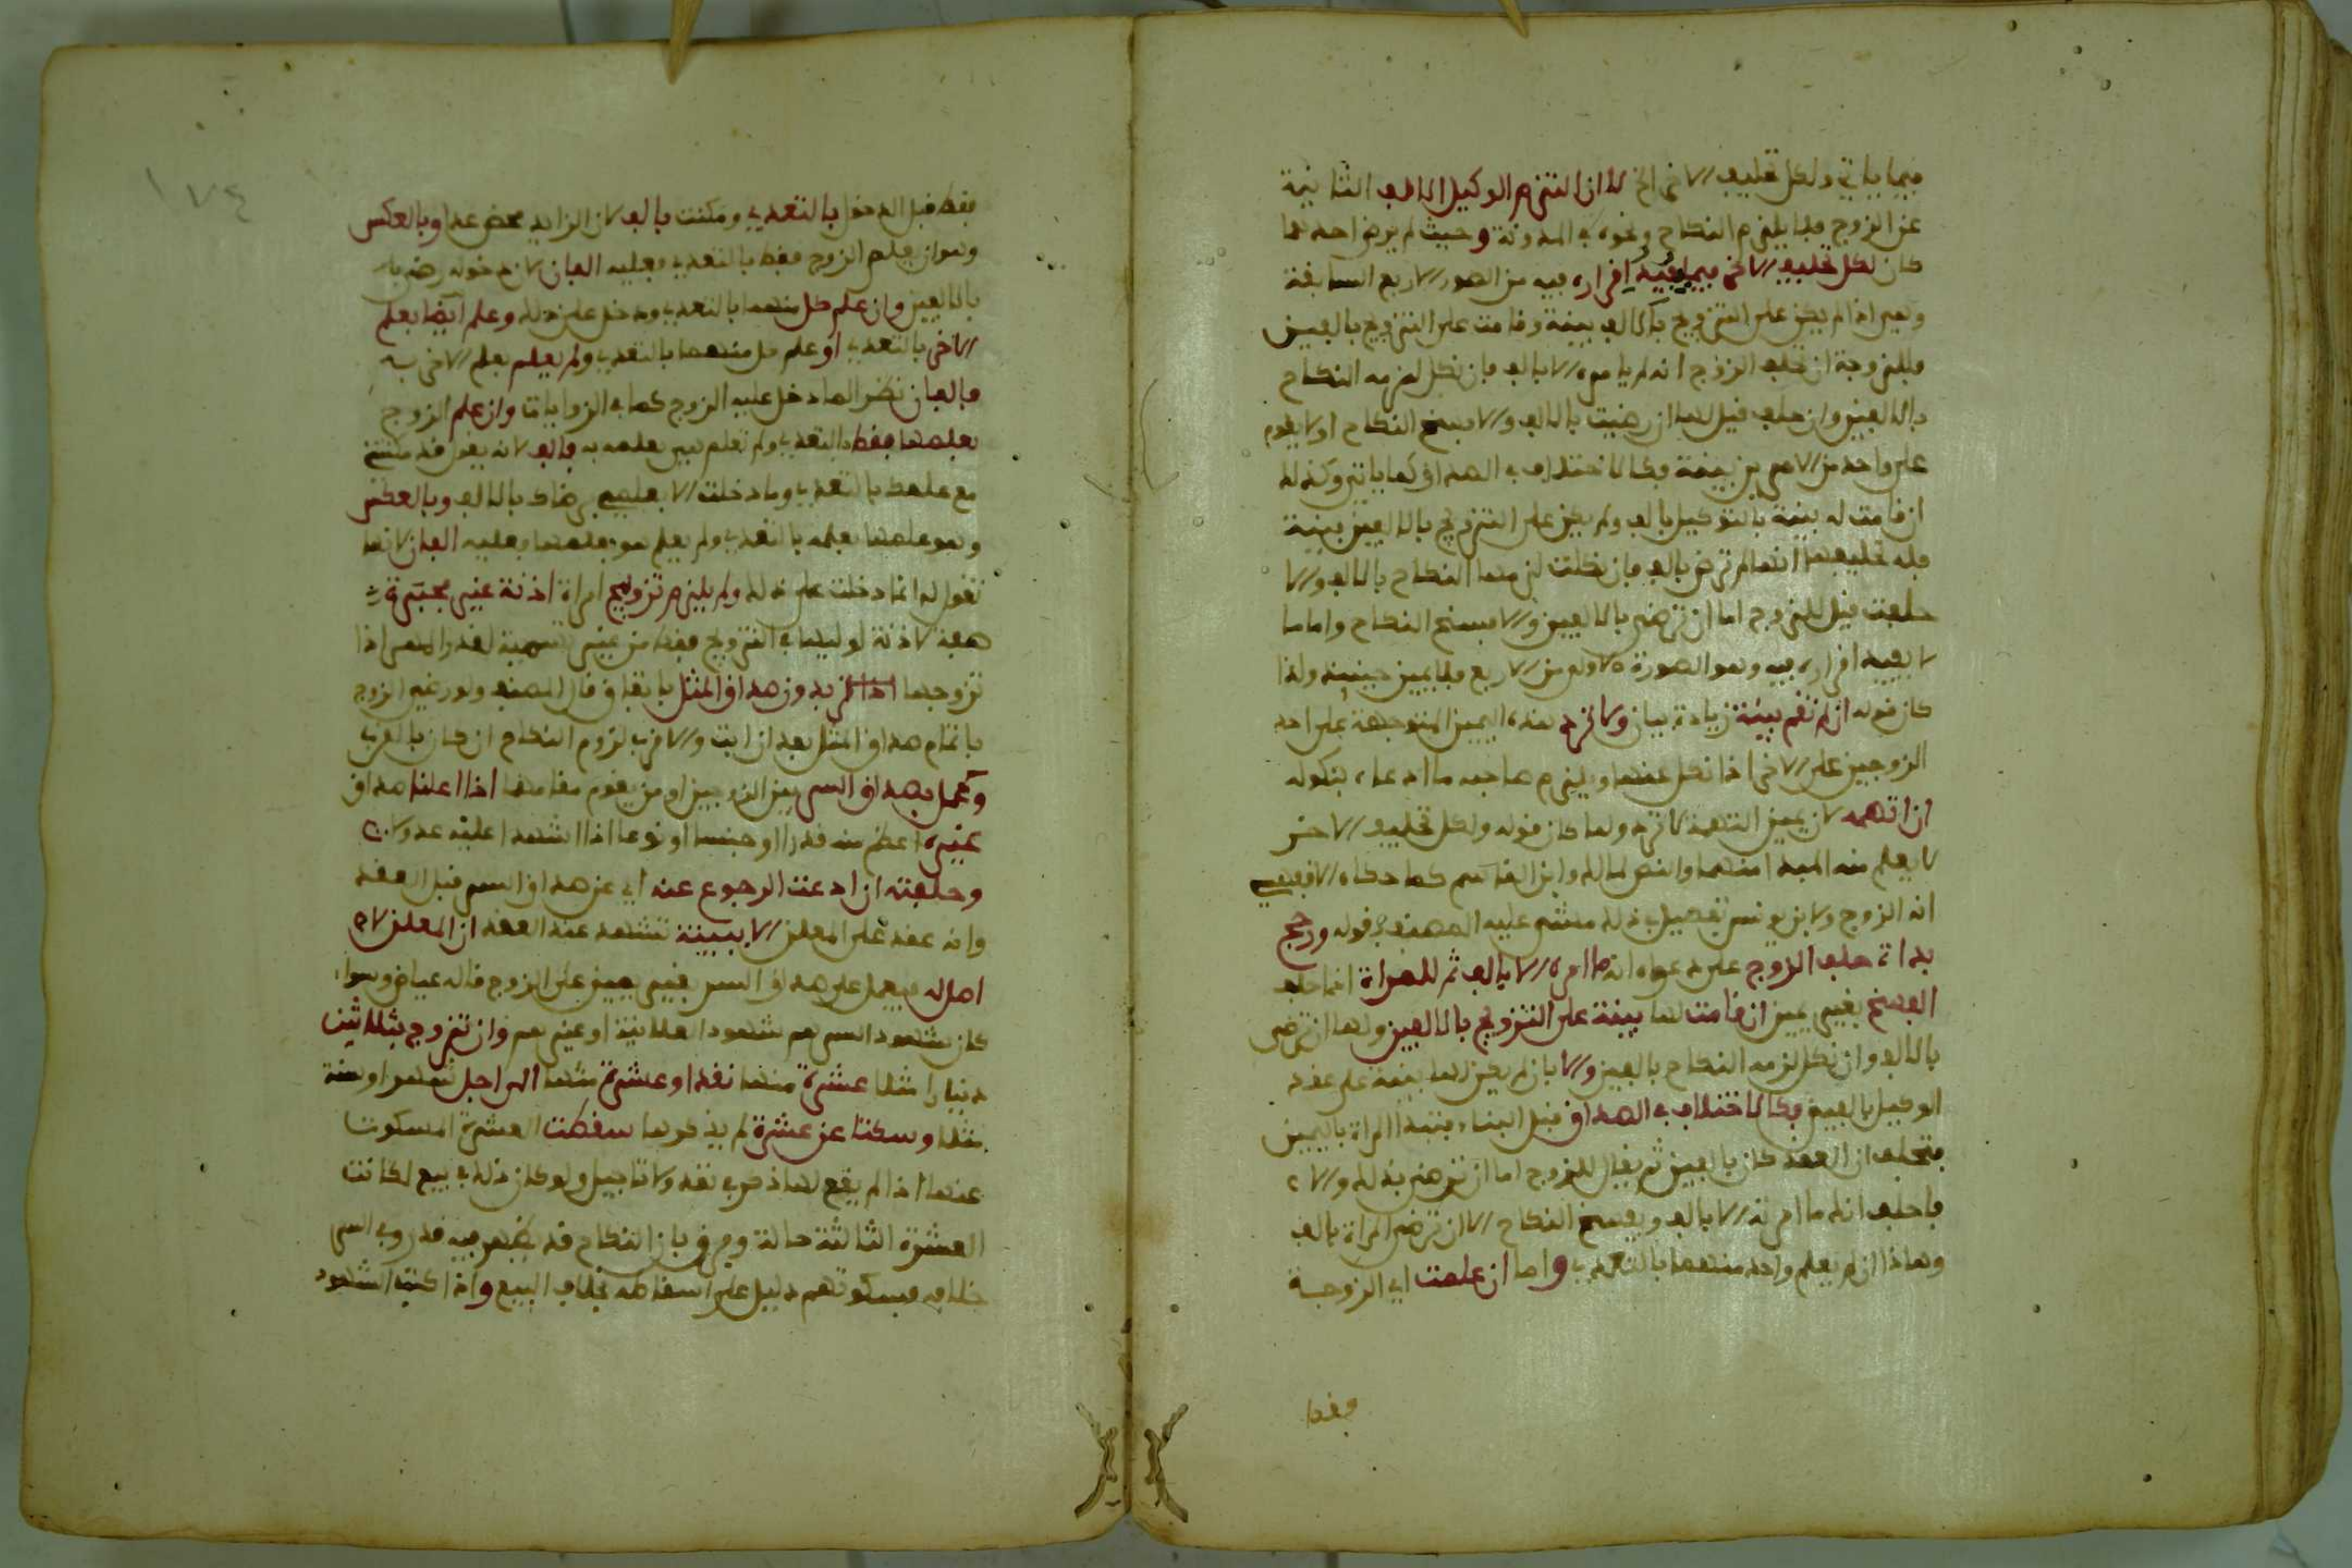 فيما ياتي ولكل تحليف الاخر الخ لا ان التزم الوكيل الالف الثانية
عن الزوج فلا يلزم النكاح ونحوه في المدونة وحيث لم يرض احدهما
كان لكل تحليف الاخر فيما يفيد اقراره فيه من الصور الاربع السابقة
وهي اذا لم يكن على التزويج بالالف بينة وقامت على التزويج بالفين
فللزوجة ان تحلف الزوج انه لم يامره الا بالف فان نكل لزمه النكاح
بالالفين وان حلف قيل لها ان رضيت بالالف والا فسخ النكاح او لا يقوم
على واحد من الامرين بينة فكالاختلاف في الصداق كما ياتي وكذلك
ان قامت له بينة بالتوكيل بالف ولم يكن على التزويج بالالفين بينة
فله تحليفها انها لم ترض بالف فان نكلت لزمها النكاح بالالف والا
حلفت قيل للزوج اما ان ترضى بالالفين والا فسخ النكاح واما ما
لا يفيد اقراره فيه وهو الصورة الاولى من الاربع فلا يمين حينئذ ولذا
كان قوله ان لم تقم بينة زيادة بيان ولا ترد هذه اليمين المتوجهة على احد
الزوجين على الاخر اذا نكل عنها ويلزم صاحبه ما ادعاه بنكوله
ان اتهمه لان يمين التهمة لا ترد ولما كان قوله ولكل تحليف الاخر
لا يعلم منه المبدا منهما والنص لمالك وابن القاسم كما حكاه الافقهسي
انه الزوج ولابن يونس تفصيل في ذلك مشى عليه المصنف في قوله ورجح
بداة حلف الزوج على دعواه انه ما امره الا بالف ثم للمراة اذا حلف
الفسخ بغير يمين ان قامت لها بينة على التزويج بالالفين ولها ان ترضى
بالالف وان نكل لزمه النكاح بالفين والا بان لم يكن لها بينة على عقد
الوكيل بالفين فكالاختلاف في الصداق قبل البناء فتبدا المراة باليمين
فتحلف ان العقد كان بالفين ثم يقال للزوج اما ان ترضى بذلك والا
فاحلف انك ما امرته الا بالف ويفسخ النكاح الا ان ترضى المراة بالف
وهاذا ان لم يعلم واحد منهما بالتعدي واما ان علمت اي الزوجة
فقط
١٧٤
فقط قبل الدخول بالتعدي ومكنت بالف لان الزايد محض عدا وبالعكس
وهو ان يعلم الزوج فقط بالتعدي فعليه الفان لان دخوله رضى به
بالالفين وان علم كل منهما بالتعدي ودخل على ذلك وعلم ايضا بعلم
الاخر بالتعدي او علم كل منهما بالتعدي ولم يعلم بعلم الاخر به
فالفان نظرا لما دخل عليه الزوج كما في الروايات وان علم الزوج
بعلمها فقط بالتعدي ولم تعلم هي بعلمه به فالف لانه يقول قد مكنتني
مع علمك بالتعدي وما دخلت الا بعلمي برضاك بالالف وبالعكس
وهو علمها بعلمه بالتعدي ولم يعلم هو بعلمها فعليه الفان لانها
تقول له انما دخلت على ذلك ولم يلزم تزويج امراة اذنة غير مجبرة
صفة لاذنة لوليها في التزويج فقط من غير تسمية لقدر المهر اذا
تزوجها اذا لم بدون صداق المثل باتفاق قال المصنف ولو رضي الزوج
باتمام صداق المثل بعد ان ابت والاقرب لزوم النكاح ان كان بالقرب
وعمل بصداق السر بين الزوجين او من يقوم مقامهما اذا اعلنا صداق
غيره اعظم منه قدرا او جنسا او نوعا اذا اشهدا عليه عدولا
وحلفته ان ادعت الرجوع عنه اي عن صداق السر قبل العقد
وانه عقد على المعلن الا ببينة تشهد عند العقد ان المعلن لا
اصل له فيعمل على صداق السر بغير يمين على الزوج قاله عياض وسواء
كان شهود السر هم شهود العلانية او غيرهم وان تزوج بثلاثين
دينارا مثلا عشرة منها نقدا وعشرة منها الى اجل شهر او سنة
مثلا وسكتا عن عشرة لم يذكرها سقطت العشرة المسكوت
عنها اذا لم يقع لها ذكر في نقد ولا تاجيل ولو كان ذلك في بيع لكانت
العشرة الثالثة حالة وفرق بان النكاح قد يظهر فيه قدر وفي السر
خلافه فسكوتهم دليل على اسقاطه بخلاف البيع واذا كتب الشهود